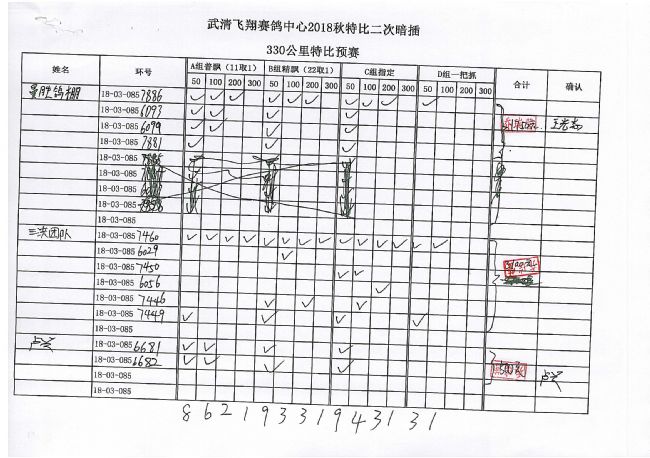 武清飞翔赛鸽中心2018秋特比二次暗插
330公里特比预赛
姓名 环号 A组普飘（11取1） B组精飘（22取1） C组指定 D组一把抓 合计 确认
50 100 200 300 50 100 200 300 50 100 200 300 50 100 200 300
18-03-085 7886 ✓ ✓ ✓ ✓ ✓ ✓ ✓ ✓ ✓ ✓
18-03-085 6093 ✓ ✓ ✓ ✓
18-03-085 6099 ✓ ✓ ✓ ✓
18-03-085 7881 ✓ ✓ ✓
18-03-085
18-03-085
18-03-085
18-03-085
18-03-085
三决团队 18-03-085 7460 ✓ ✓ ✓ ✓ ✓ ✓ ✓ ✓ ✓ ✓ ✓ ✓ ✓ ✓
18-03-085 6029 ✓
18-03-085 7450 ✓ ✓
18-03-085 6056 ✓
18-03-085 7446 ✓ ✓ ✓
18-03-085 7449 ✓ ✓ ✓ ✓
18-03-085
卢兴 18-03-085 6681 ✓ ✓ ✓ ✓
18-03-085 6682 ✓ ✓ ✓ ✓
18-03-085 卢兴
18-03-085
8 6 2 1 9 3 3 1 9 4 3 1 3 1